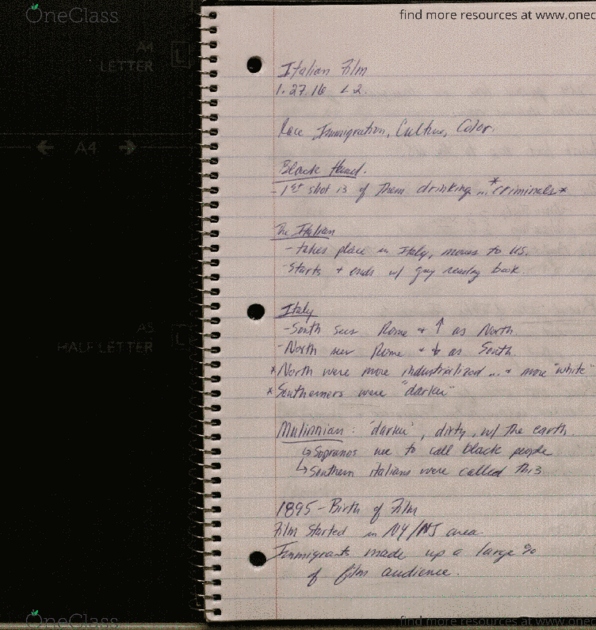 OneClass
find more resources at www.onec
A4
LETTER
L
A4
A5
HALF LETTER
L
Italian Film
1.27.16 L2.
Race Immigration, Culture, Color.
Black Hand.
- 1st shot is of them drinking ... *criminals*
The Italian
- takes place in Italy, moves to US.
- Starts + ends w/ guy reading book
Italy
- South sees Rome + ↑ as North
- North sees Rome + ↓ as South
* North were more industrialized ... + more "white"
* Southerners were "darker"
Mulinnian: "darker", dirty, w/ the earth
↳ Sopranos use to call black people
↳ Southern italians were called this
1895 - Birth of Film
Film Started in NY/NJ area.
Immigrants made up a large %
of film audience.
OneClass
find more resources at www.onec